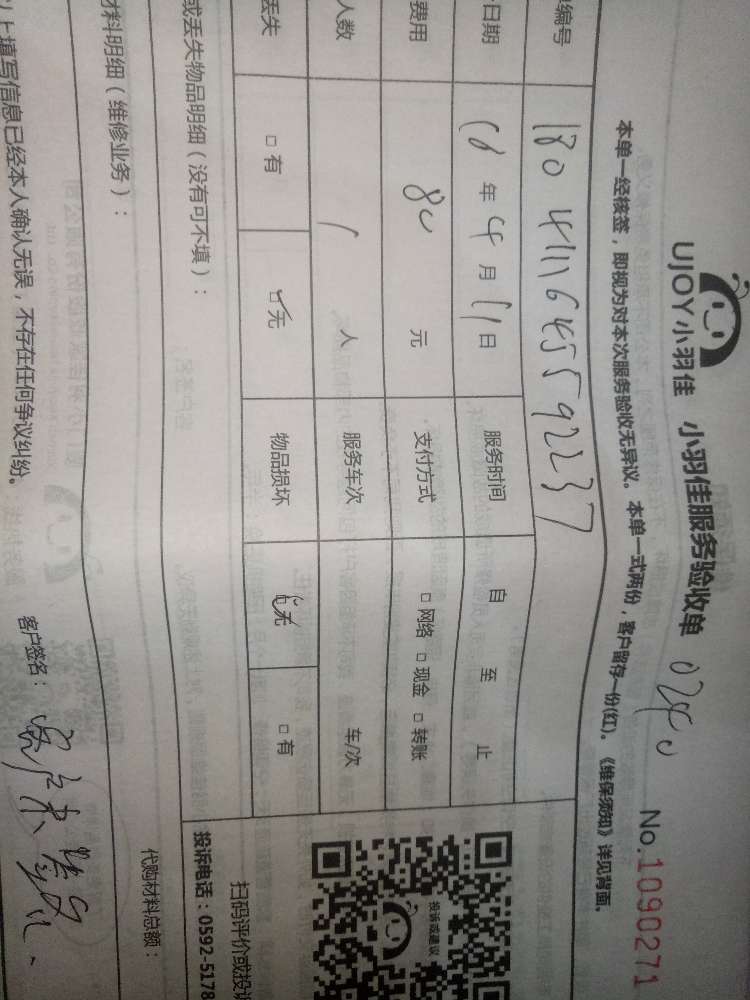 UJOY小羽佳 小羽佳服务验收单 0240 No.1090271
本单一经核签，即视为对本次服务验收无异议。本单一式两份，客户留存一份(红)。《维保须知》详见背面。
编号 1804111645592237
日期 18年4月11日 服务时间 自 至 止
费用 80元 支付方式 □网络 □现金 □转账
人数 1人 服务车次 车/次
丢失 □有 ☑无 物品损坏 ☑无 □有
或丢失物品明细（没有可不填）：
投诉或建议
扫码评价或投诉
投诉电话：0592-5178
材料明细（维修业务）：
代购材料总额：
上填写信息已经本人确认无误，不存在任何争议纠纷。 客户签名：